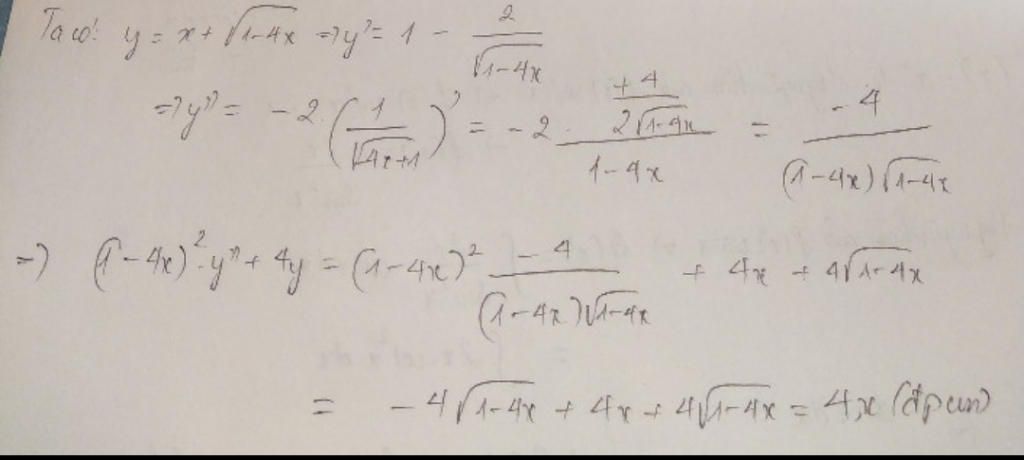 Ta có: y = x + √(1-4x) => y' = 1 - 2/√(1-4x)
=> y'' = -2.(1/√(4x+1))' = -2. (+4/(2√(1-4x)))/(1-4x) = -4/((1-4x)√(1-4x))
=> (1-4x)².y'' + 4y = (1-4x)² -4/((1-4x)√(1-4x)) + 4x + 4√(1-4x)
= -4√(1-4x) + 4x + 4√(1-4x) = 4x (đpcm)